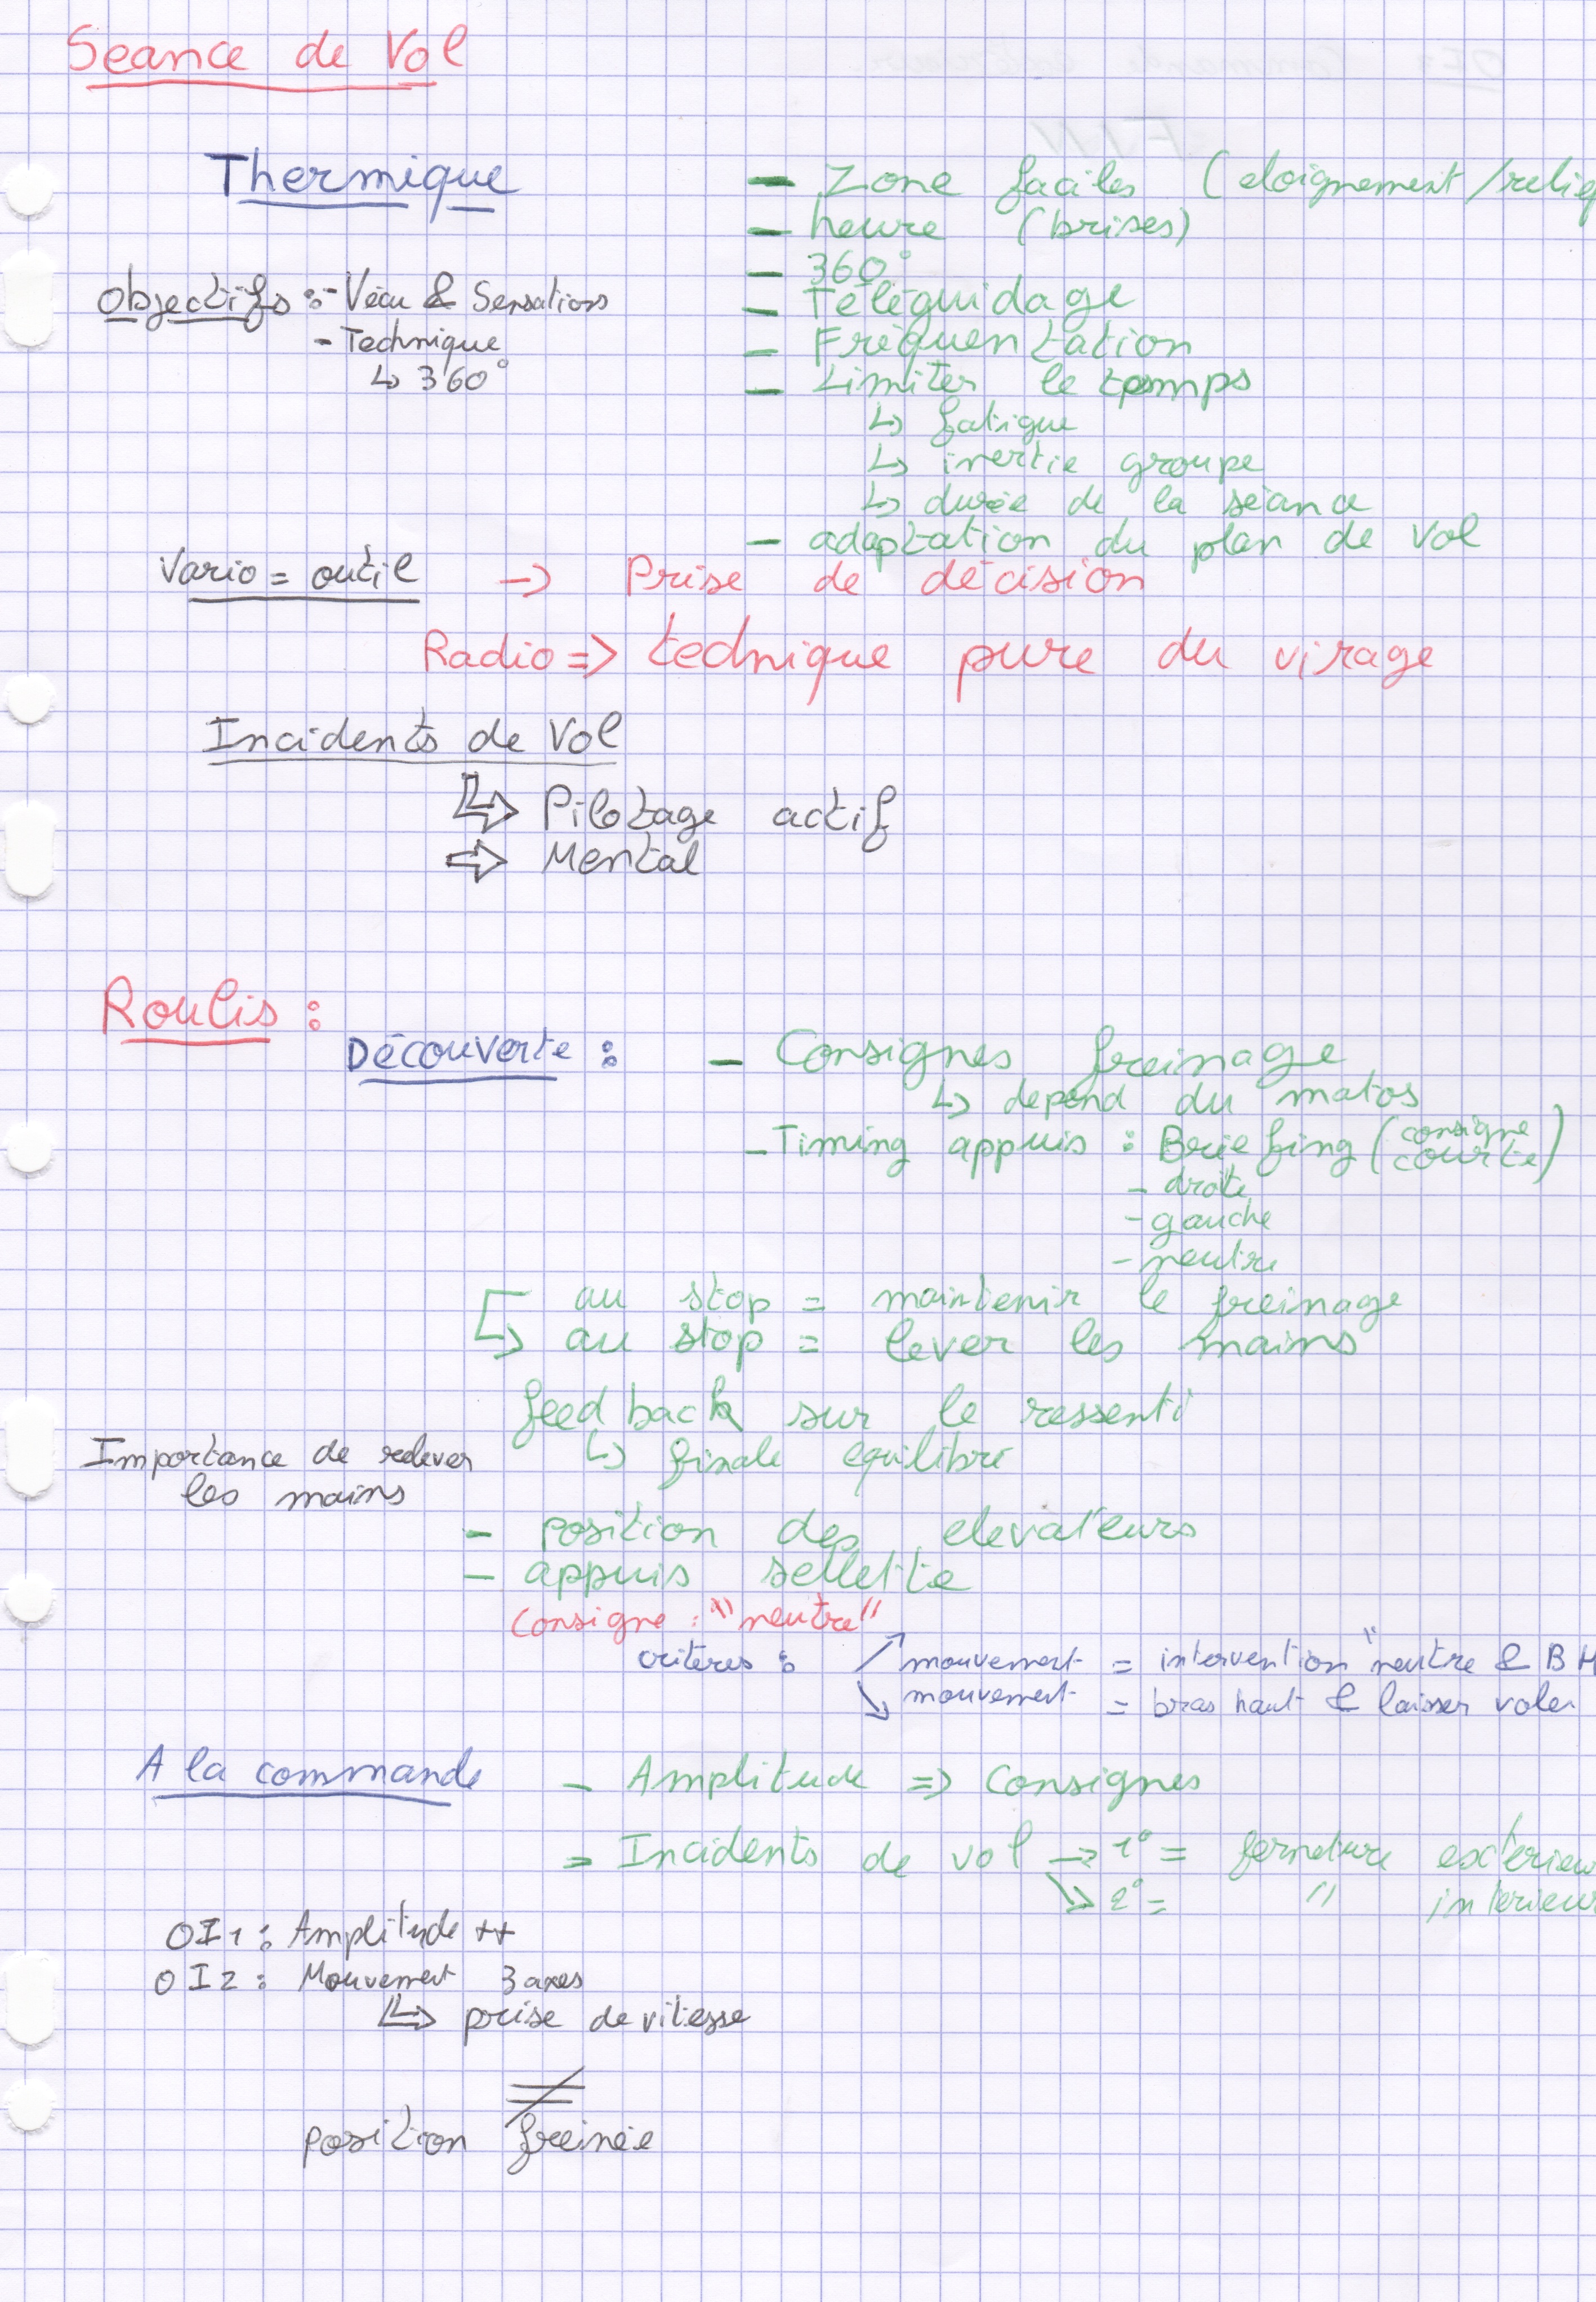 Séance de Vol
Thermique
- Zone faciles (eloignement/relief
- heure (brises)
- 360°
Objectifs :- Vécu & Sensations
- Téléguidage
- Technique
- Fréquentation
↳ 360°
- Limiter le temps
↳ fatigue
↳ inertie groupe
↳ durée de la séance
- adaptation du plan de vol
Vario = outil -> Prise de décision
Radio => technique pure du virage
Incidents de Vol
↳ Pilotage actif
⇒ Mental
Roulis :
Découverte : - Consignes freinage
↳ depend du matos
- Timing appuis : Briefing (consigne courte)
- droite
- gauche
- neutre
au stop = maintenir le freinage
↳ au stop = lever les mains
feedback sur le ressenti
Importance de relever
↳ finale equilibré
les mains
- position des elevateurs
- appuis sellette
Consigne : "neutre"
critères : ↗ mouvement = intervention "neutre & BH
↘ mouvement = bras haut & laisser voler
A la commande - Amplitude => Consignes
- Incidents de vol → 1° = fermeture exterieur
↘ 2° = " interieur
OI1 : Amplitude ++
OI2 : Mouvement 3 axes
↳ prise de vitesse
≠
position freinée